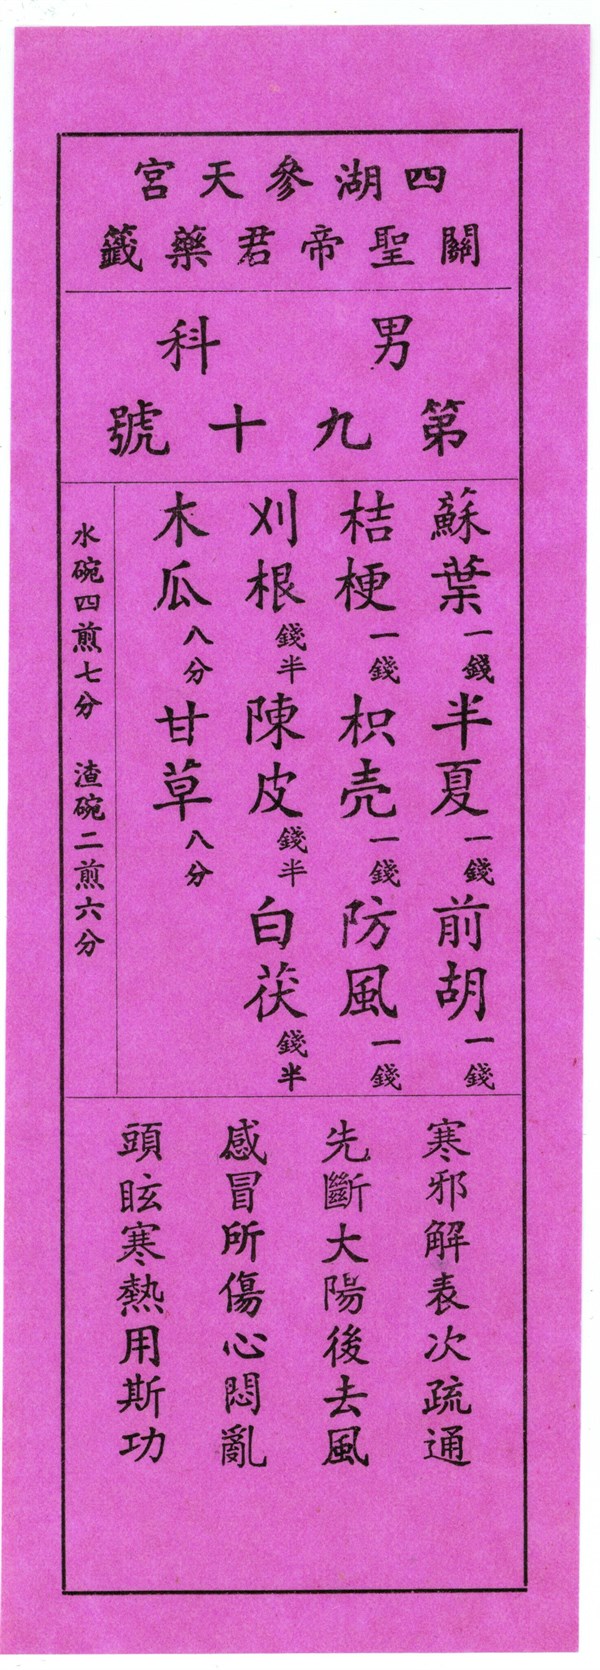 四湖參天宮
關聖帝君藥籤
男科
第九十號
蘇葉一錢半夏一錢前胡一錢
桔梗一錢枳壳一錢防風一錢
刈根錢半陳皮錢半白茯錢半
木瓜八分甘草八分
水碗四煎七分　渣碗二煎六分
寒邪解表次疏通
先斷大陽後去風
感冒所傷心悶亂
頭眩寒熱用斯功